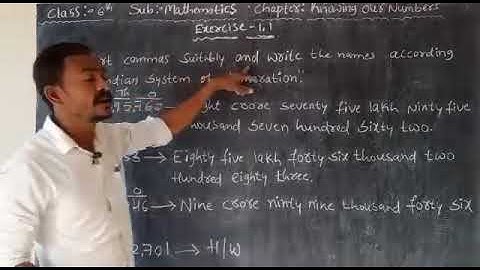 Class:- 6th Sub:- Mathematics Chapter: Knowing Our Numbers
Exercise - 1.1
commas suitably and write the names according
System of
Th O
,75, → crore seventy five lakh ninty five
thousand seven hundred sixty two.
→ Eighty five lakh forty six thousand two
hundred eighty three.
O
46 → Nine crore ninty nine thousand forty six
2,701 → H/W